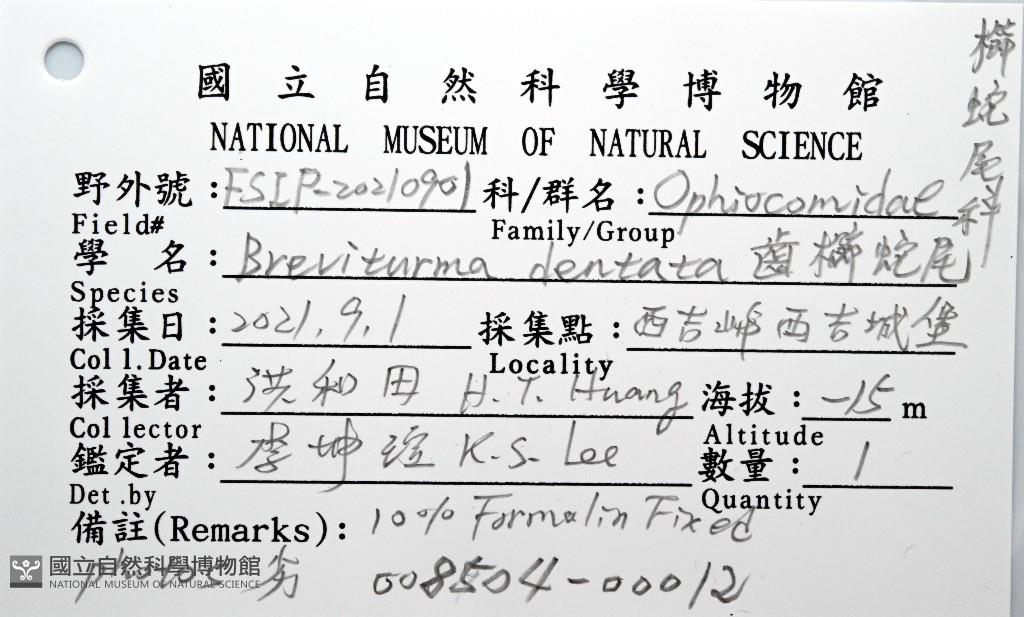 國立自然科學博物館
NATIONAL MUSEUM OF NATURAL SCIENCE
櫛蛇尾科
野外號:FSIP-20210901 科/群名:Ophiocomidae
Field# Family/Group
學 名:Breviturma dentata 齒櫛蛇尾
Species
採集日:2021.9.1 採集點:西吉嶼西吉城堡
Coll.Date Locality
採集者:洪和田 H.T. Huang 海拔:-15 m
Collector Altitude
鑑定者:李坤瑄 K.S. Lee 數量:1
Det.by Quantity
備註(Remarks): 10% Formalin Fixed
008504-00012
國立自然科學博物館
NATIONAL MUSEUM OF NATURAL SCIENCE